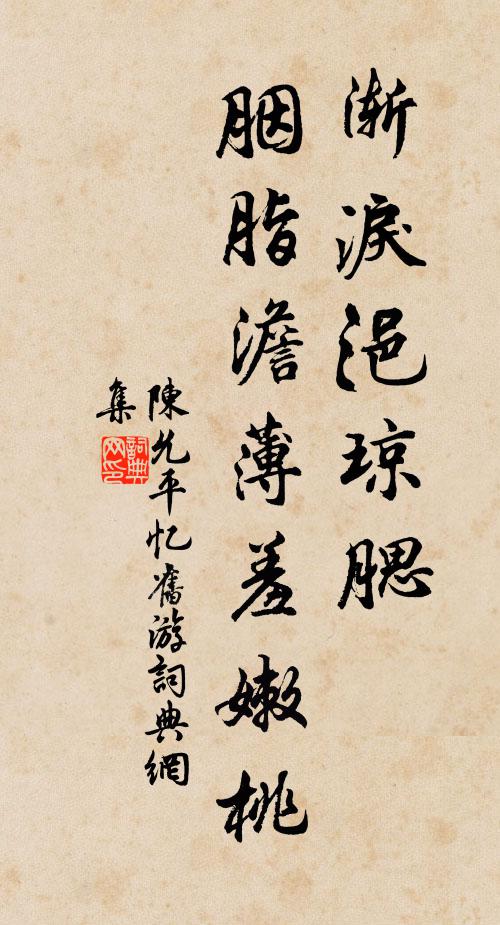 渐淚浥琼腮
胭脂澹薄羞嫩桃
陳允平忆舊游詞典網
集
詞典网印